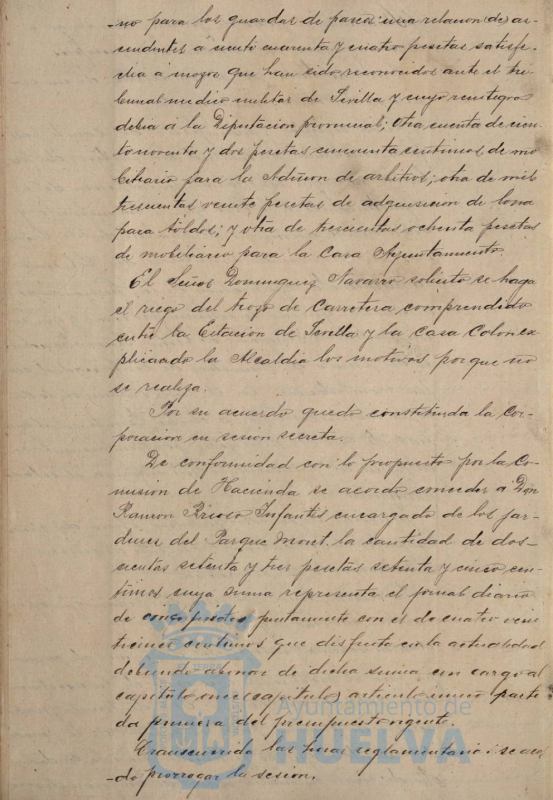 -no para los guardas de paseos una relacion (de) as-
cendentes á ciento cuarenta y cuatro pesetas satisfe-
cha á mozos que han sido reconocidos ante el tri-
bunal medico militar de Sevilla y cuyo reintegro
debia á la Diputacion provincial; otra cuenta de cien-
to noventa y dos pesetas cincuenta centimos de mo-
biliario para la Admon de arbitrios; otra de mil
trescientas veinte pesetas de adquisicion de lona
para toldos; y otra de trescientas ochenta pesetas
de mobiliario para la Casa Ayuntamiento
El Señor Dominguez Navarro solicito se haga
el riego del trozo de Carretera comprendido
entre la Estacion de Sevilla y la Casa Colon ex
plicando la Alcaldia los motivos porque no
se realiza.
Por su acuerdo quedo constituida la Cor-
poracion en sesion secreta.
De conformidad con lo propuesto por la Co-
mision de Hacienda se acordo conceder á Don
Ramon Infantes encargado de los jar-
dines del Parque Moret la cantidad de dos-
cientas setenta y tres pesetas setenta y cinco cen-
timos cuya suma representa el jornal diario
de cinco pesetas, juntamente con el de cuatro vein
ticinco centimos que disfruta en la actualidad
debiendo abonar de dicha suma con cargo al
capitulo once (capitulo) articulo unico parti-
da primera del presupuesto vigente.
Transcurridas las horas reglamentarias se acor
-do prorrogar la sesion.
Ayuntamiento de
HUELVA